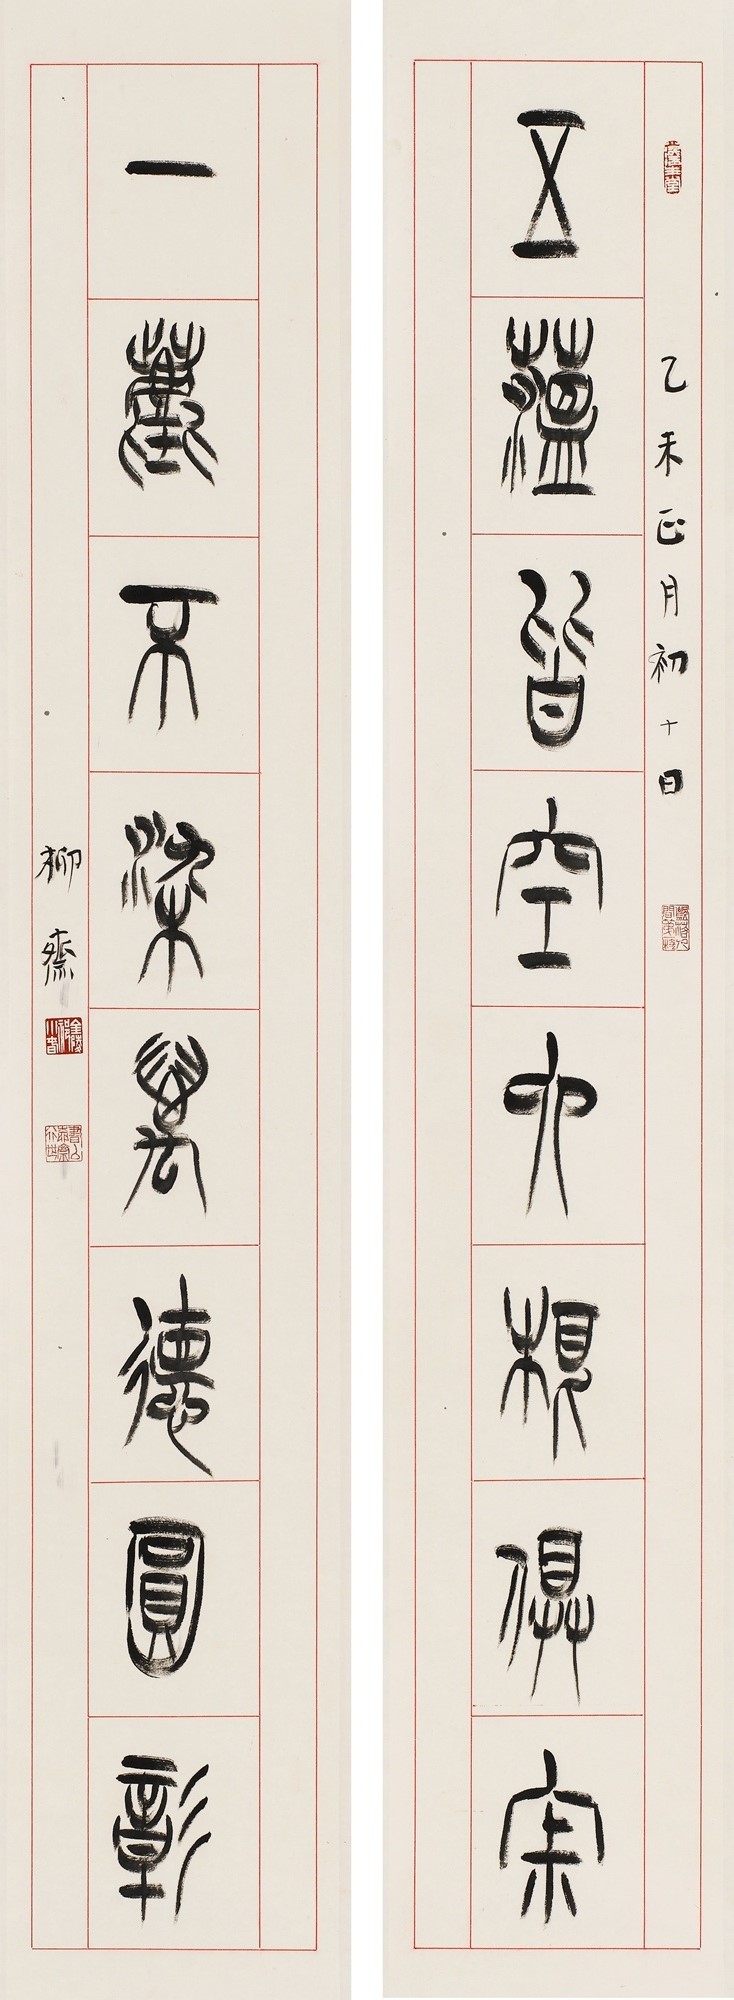 乙未正月初十日
五蘊皆空六根俱寂
一塵不染萬德圓彰
柳齋